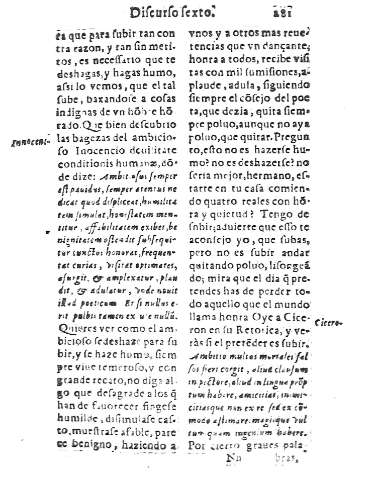 Discurso sexto.
281
ẽa que para subir tan con
tra razon, y tan sin meri-
tos, es necessario que te
deshagas, y hagas humo,
assi lo vemos, que el tal
sube, baxandose a cosas
indignas de vn hõbre hõ
rado. Que bien descubrio
las bagezas del ambicio-
so Inocencio de vilitate
conditionis humanæ, dõ-
de dize: Ambitiosus semper
est pauidus, semper atentus ne
dicat quod displiceat, humilita
tem simulat, honestatem men-
titur, affabilitatem exibet, be
nignitatem ostendit subsequi-
tur cunctos honorat, frequen
tat curias, visitat optimates,
asurgit, & amplexatur, plau
dit, & adulatur, vnde nouit
illud poeticum Et si nullus e-
rit puluis tamen excute nullũ.
Quieres ver como el am-
bicioso se deshaze para su
bir, y se haze humo, siem
pre viue temeroso, v con
grande recato, no diga al-
go que desagrade a los q̃
han de fauorecer fingese
humilde, dissimulase cas-
to, muestrase afable, pare
ce benigno, haziendo a
Innocenci-
vnos y a otros mas reue-
rencias que vn dançante;
honra a todos, recibe visi
tas con mil sumisiones, a-
plaude, adula, siguiendo
siempre el cõsejo del poe
ta, que dezia, quita siem-
pre poluo, aunque no aya
poluo, que quitar. Pregun
to, esto no es hazerse hu-
mo? no es deshazerse? no
seria mejor, hermano, es-
tarte en tu casa comien-
do quatro reales con hõ-
ra y quietud? Tengo de
subir; aduierte que esso te
aconsejo yo, que subas,
pero no es subir andar
quitando poluo, lisongeã
do; mira que el dia q̃ pre-
tendes has de perder to-
do aquello que el mundo
llama honra Oye a Cice-
ron en su Retorica, y ve-
ràs si el pretẽder es subir.
Ambitio multos mortales fal
sos fieri coegit, aliud clausum
in pectore, aliud in lingua prõp
tum habere, amicitias, inimi-
citiasque non ex re sed ex cõ-
modo æstimare. magisque vul
tus quam ingenium habere.
Por cierto graues pala
Cicero.
Nn
bras,